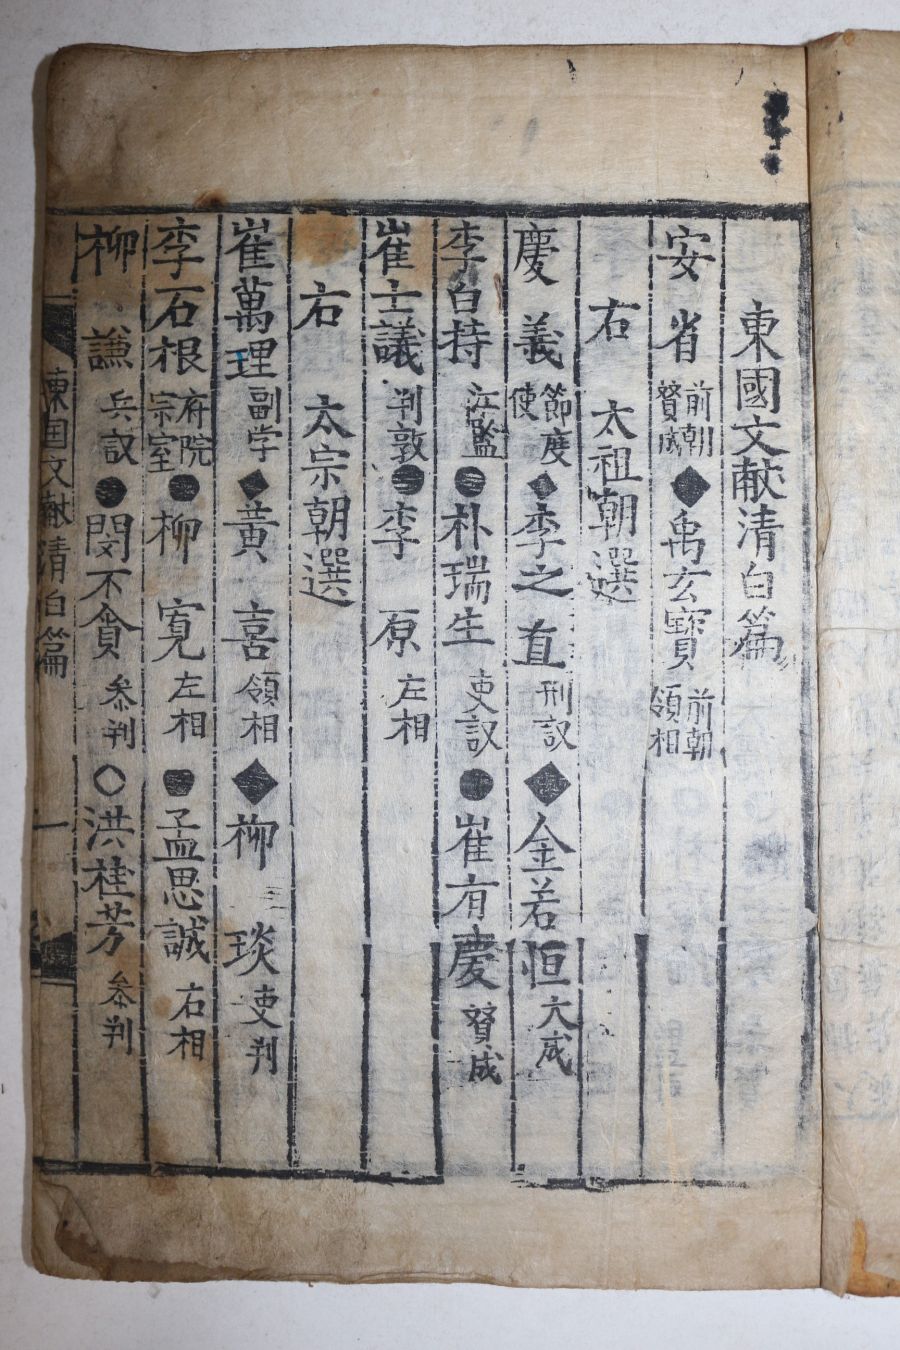 東國文献清白篇
安省 前朝贊成 ◆ 禹玄寳 前朝領相
右太祖朝選
慶義 節度使 ◆ 李之直 刑議 ◆ 金若恒 大成
李白持 江監 ● 朴瑞生 吏議 ● 崔有慶 賛成
崔士議 判敦 ● 李原 左相
右太宗朝選
崔萬理 副学 ◆ 黃喜 領相 ◆ 柳琰 吏判
李石根 府院宗室 ● 柳寛 左相 ● 孟思誠 右相
柳謙 兵議 ● 閔不貪 叅判 ◇ 洪桂芳 叅判
東國文献清白篇 一